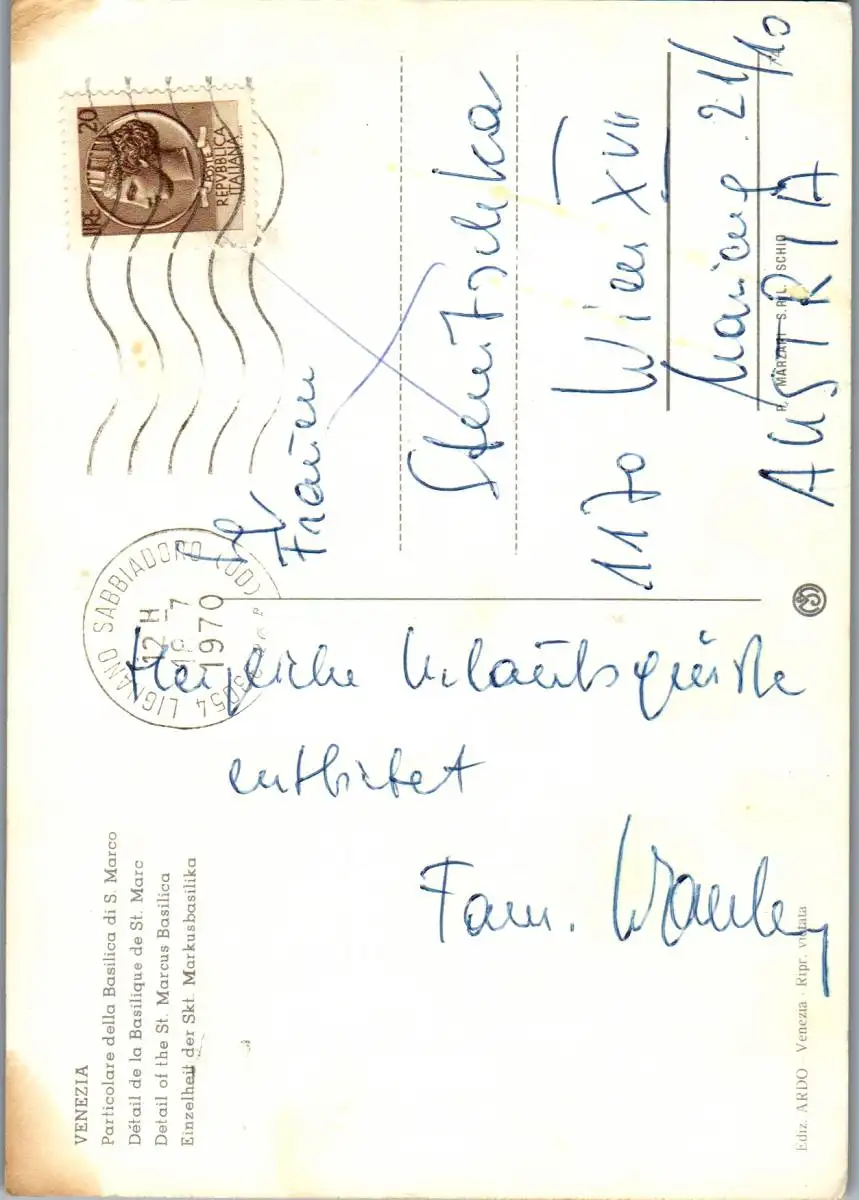 VENEZIA
Particolare della Basilica di S. Marco
Détail de la Basilique de St. Marc
Detail of the St. Marcus Basilica
Einzelheit der Skt. Markusbasilika
Herzliche Urlaubsgrüße
entbietet
Fam.
Ediz. ARDO - Venezia - Ripr. vietata
LIGNANO SABBIADORO (UD)
33054
12 H
1970
LIRE 20
POSTE
REPVBBLICA
ITALIANA
Frauen
1170 Wien XVII
21/10
AUSTRIA
MARZARI S.R.L. SCHIO